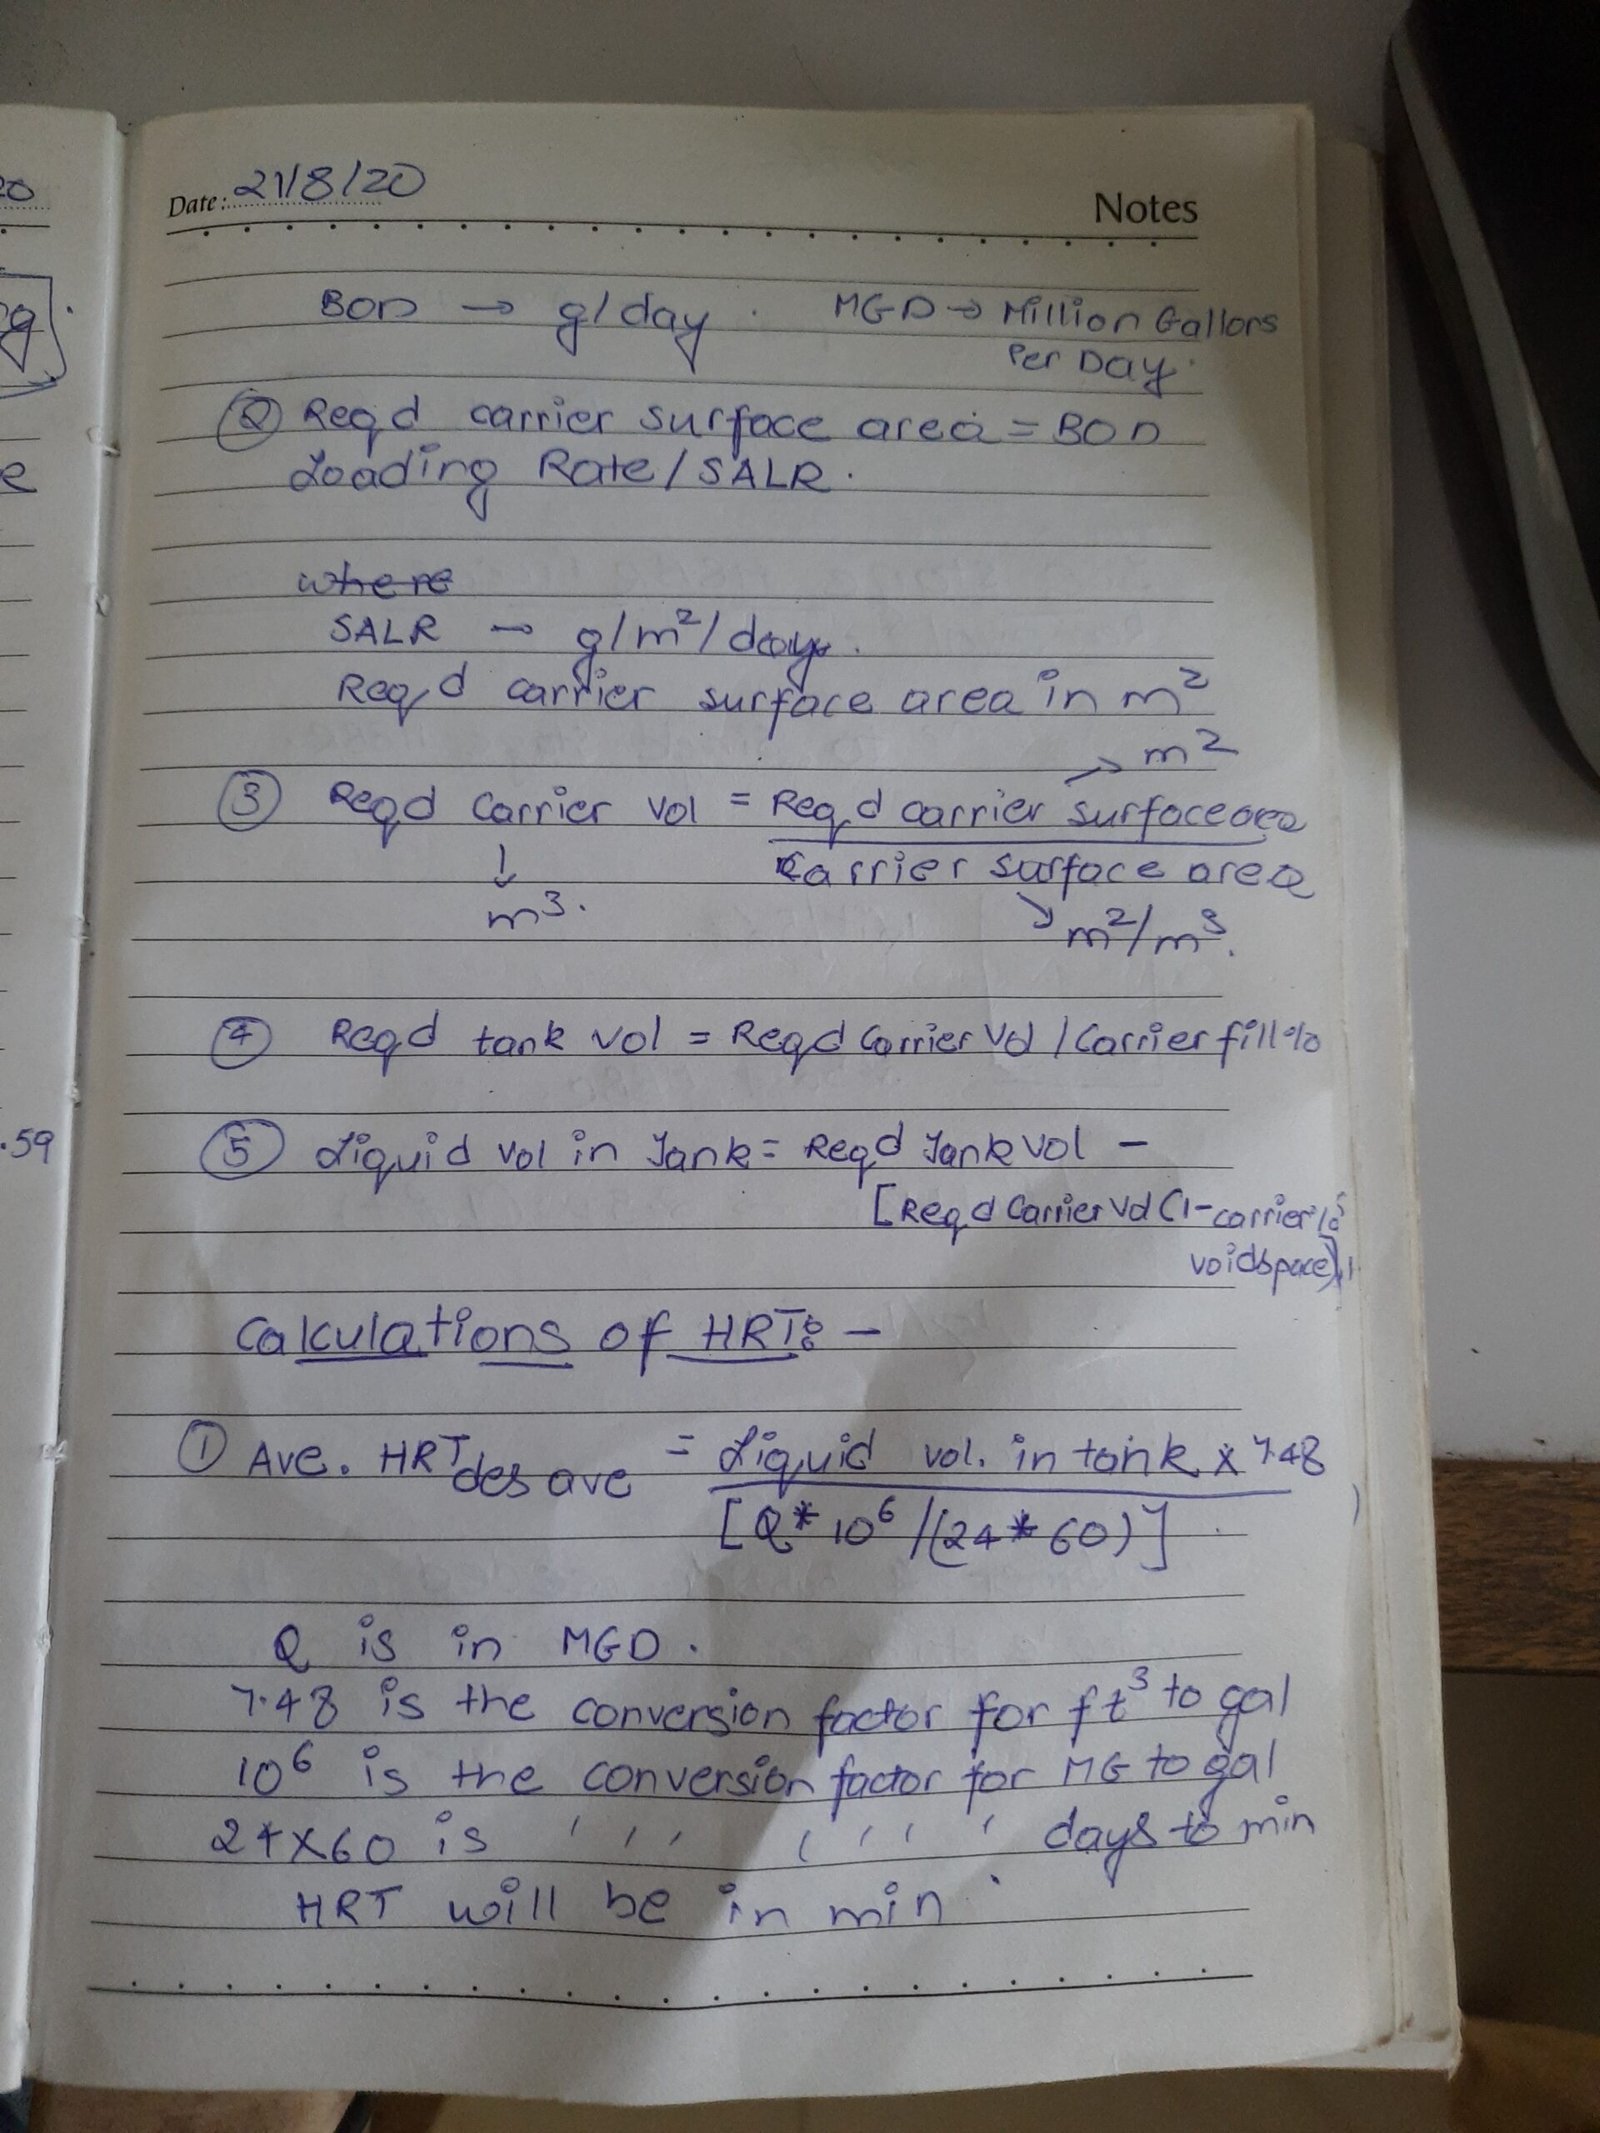 20
g
e
.59
Date: 21/8/20
Notes
BOD → g/day . MGD → Million Gallons
Per Day.
② Reqd carrier surface area = BOD
Loading Rate/SALR.
where
SALR → g/m²/day.
Reqd carrier surface area in m²
→ m²
③ Reqd Carrier Vol = Reqd carrier surface area
Carrier surface area
↓ m³.
↘ m²/m³.
④ Reqd tank vol = Reqd Carrier Vol / Carrier fill %
⑤ Liquid Vol in Tank = Reqd Tank Vol –
[Reqd Carrier Vol (1 - carrier %
void space)]
Calculations of HRT: –
① Ave. HRT des ave = Liquid vol. in tank x 7.48
[Q * 10⁶ /(24 * 60)]
Q is in MGD.
7.48 is the conversion factor for ft³ to gal
10⁶ is the conversion factor for MG to gal
24x60 is ' ' ' ' ' ' ' days to min
HRT will be in min.